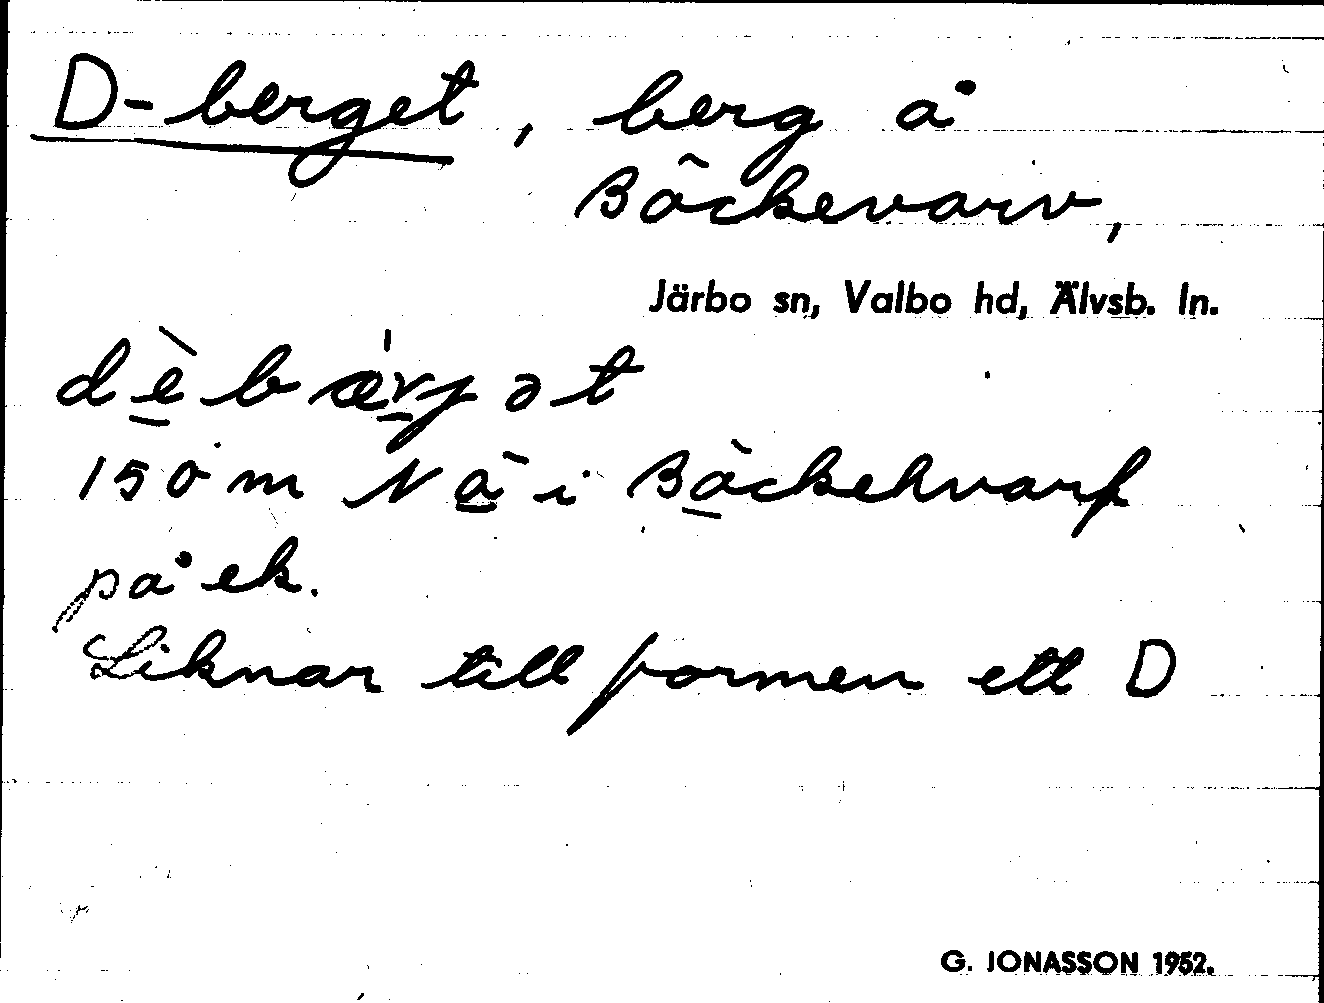 D-berget, berg å
Bäckevarv,
Järbo sn, Valbo hd, Älvsb. ln.
dèbæ̀rjət
150 m N ä i Bäckehvarf
på ek.
Liknar till formen ett D
G. JONASSON 1952.